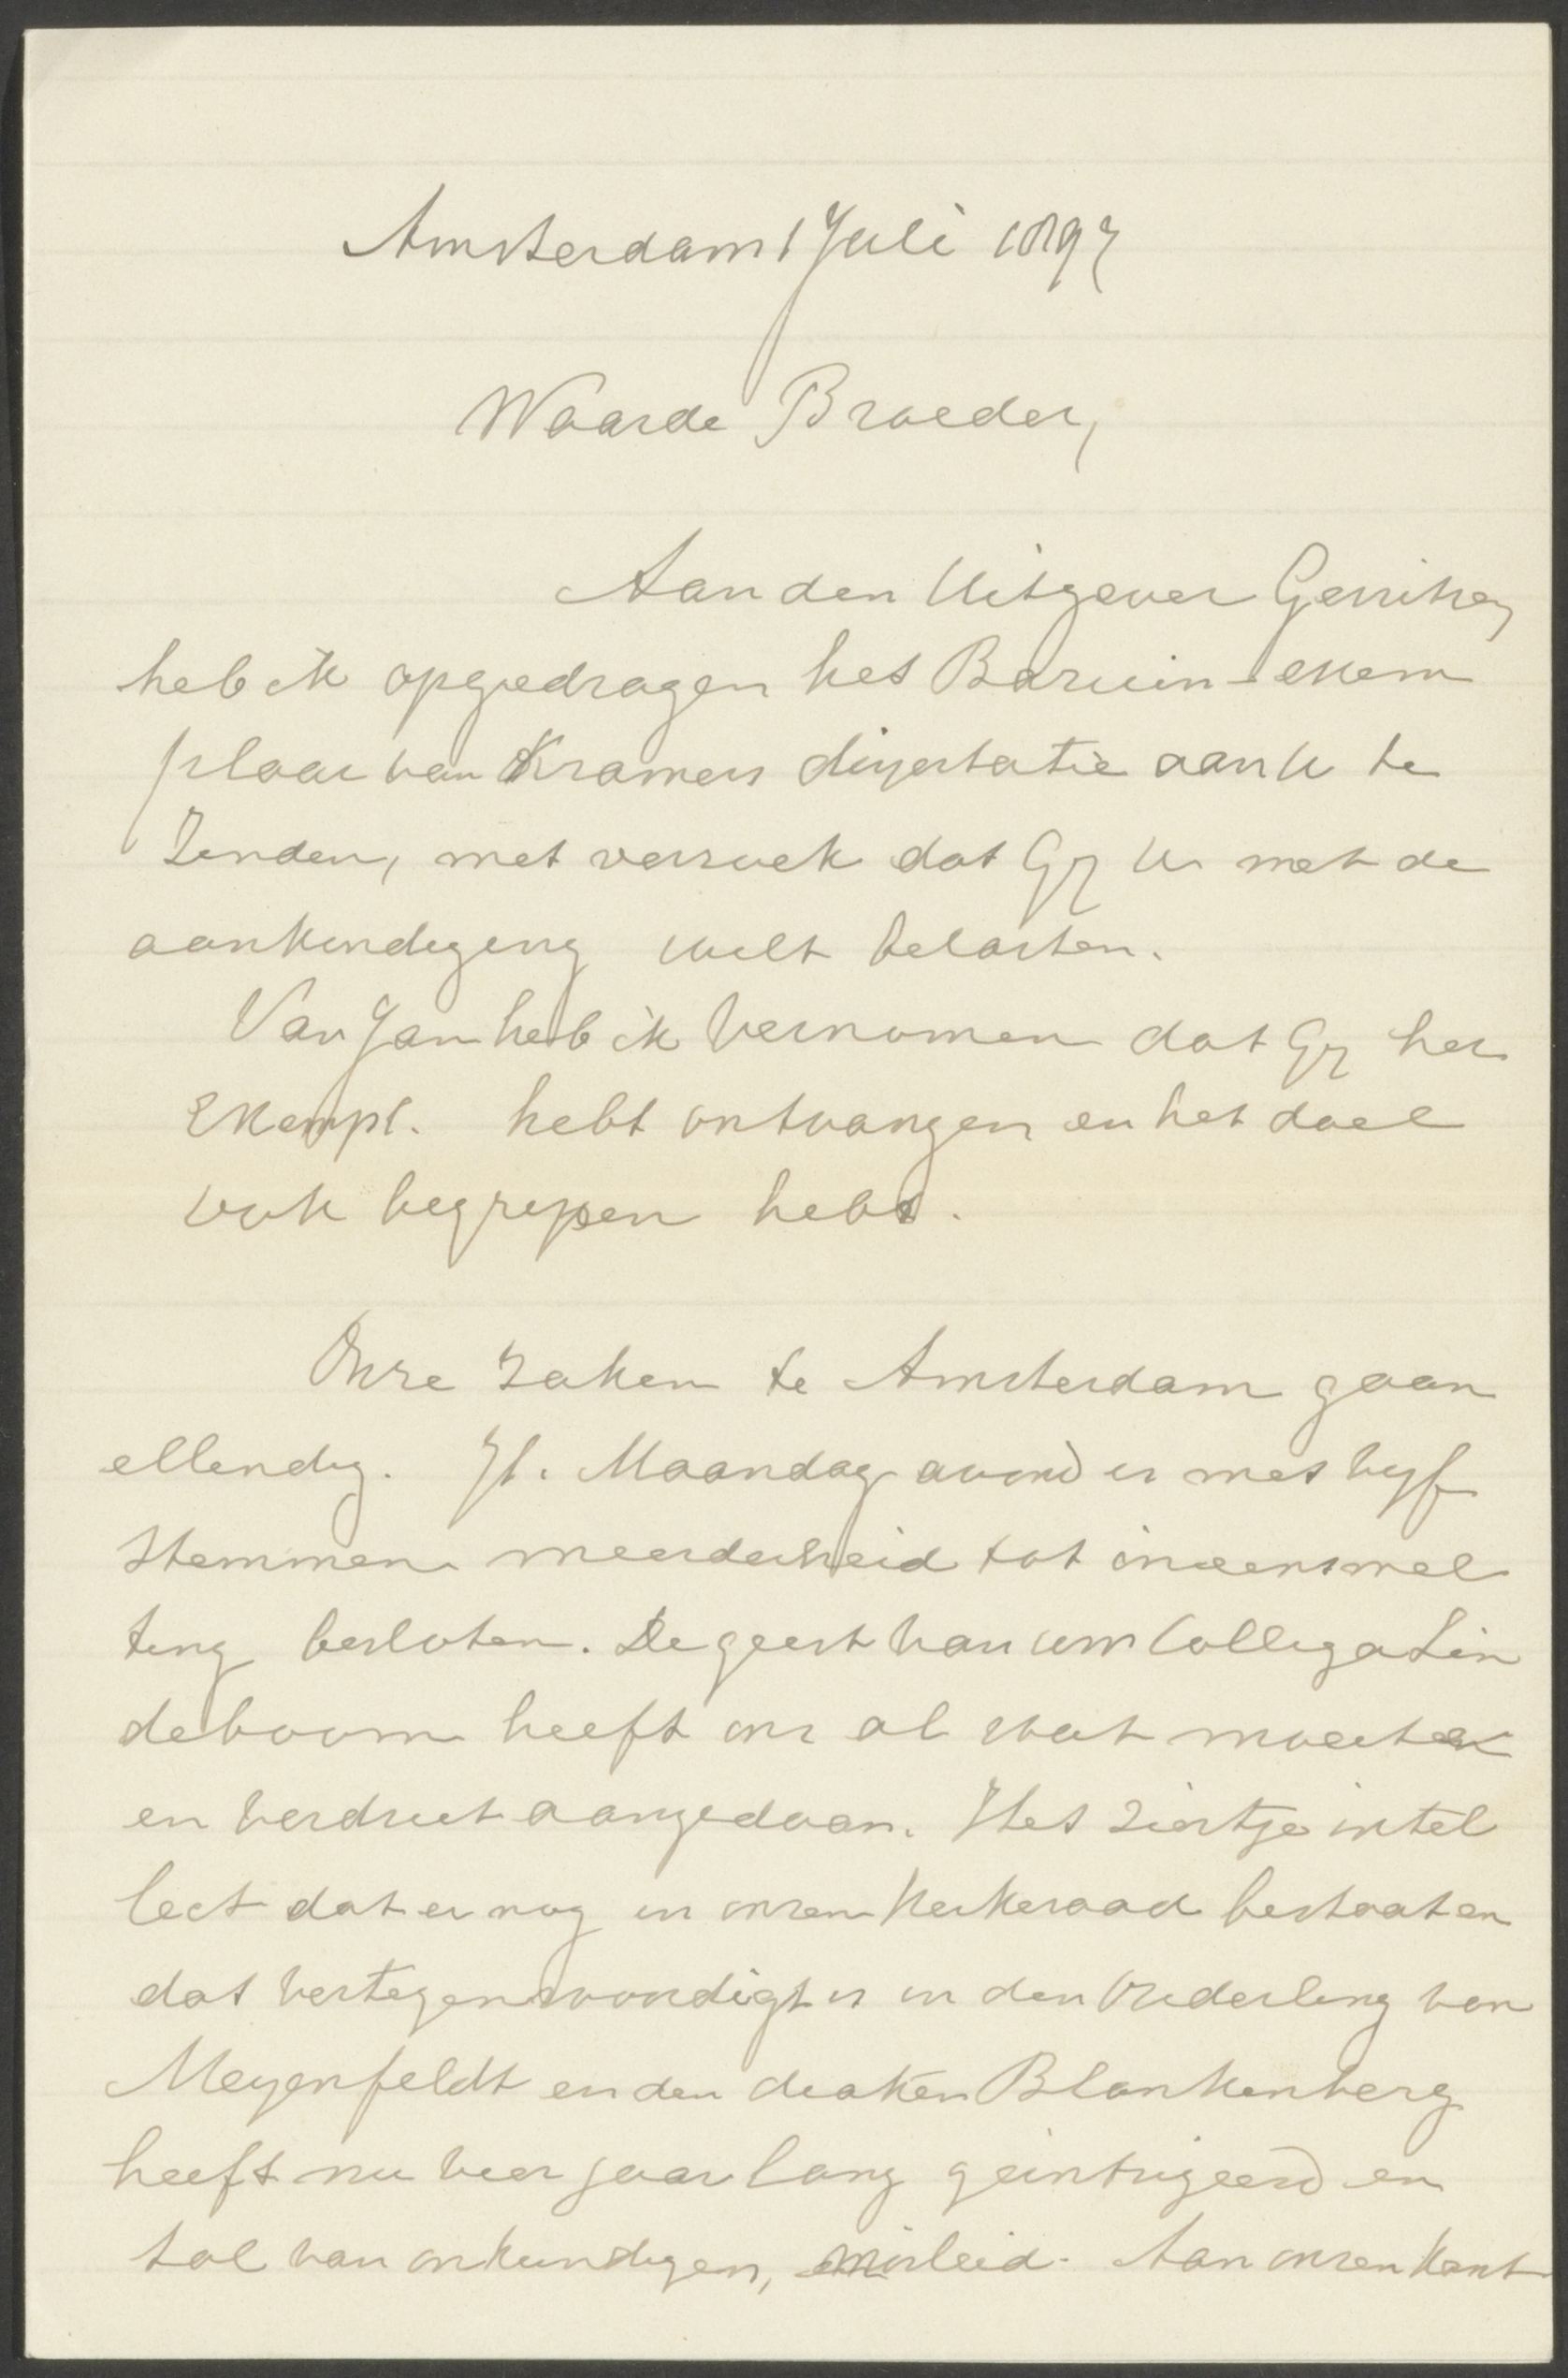 Amsterdam 1 Juli 1897
Waarde Broeder,
Aan den Uitgever Gerritsen
heb ik opgedragen het Bazuin-exem
plaar van Kramers dissertatie aan U te
zenden, met verzoek dat Gij U met de
aankondiging wilt belasten.
Van Jan heb ik vernomen dat Gij het
exempl. hebt ontvangen en het doel
ook begrepen hebt.
Onze zaken te Amsterdam gaan
ellendig. Jl. Maandag avond is met vijf
stemmen meerderheid tot ineensmel
ting besloten. De geest van uw Collega Lin
deboom heeft ons al wat moeite
en verdriet aangedaan. Het ziertje intel
lect dat er nog in onzen Kerkeraad bestaat en
dat vertegenwoordigt is in den Ouderling van
Meyenfeldt en den diaken Blankenberg
heeft nu vier jaar lang geïntrigeerd en
tal van onkundigen, misleid. Aan onzen kant